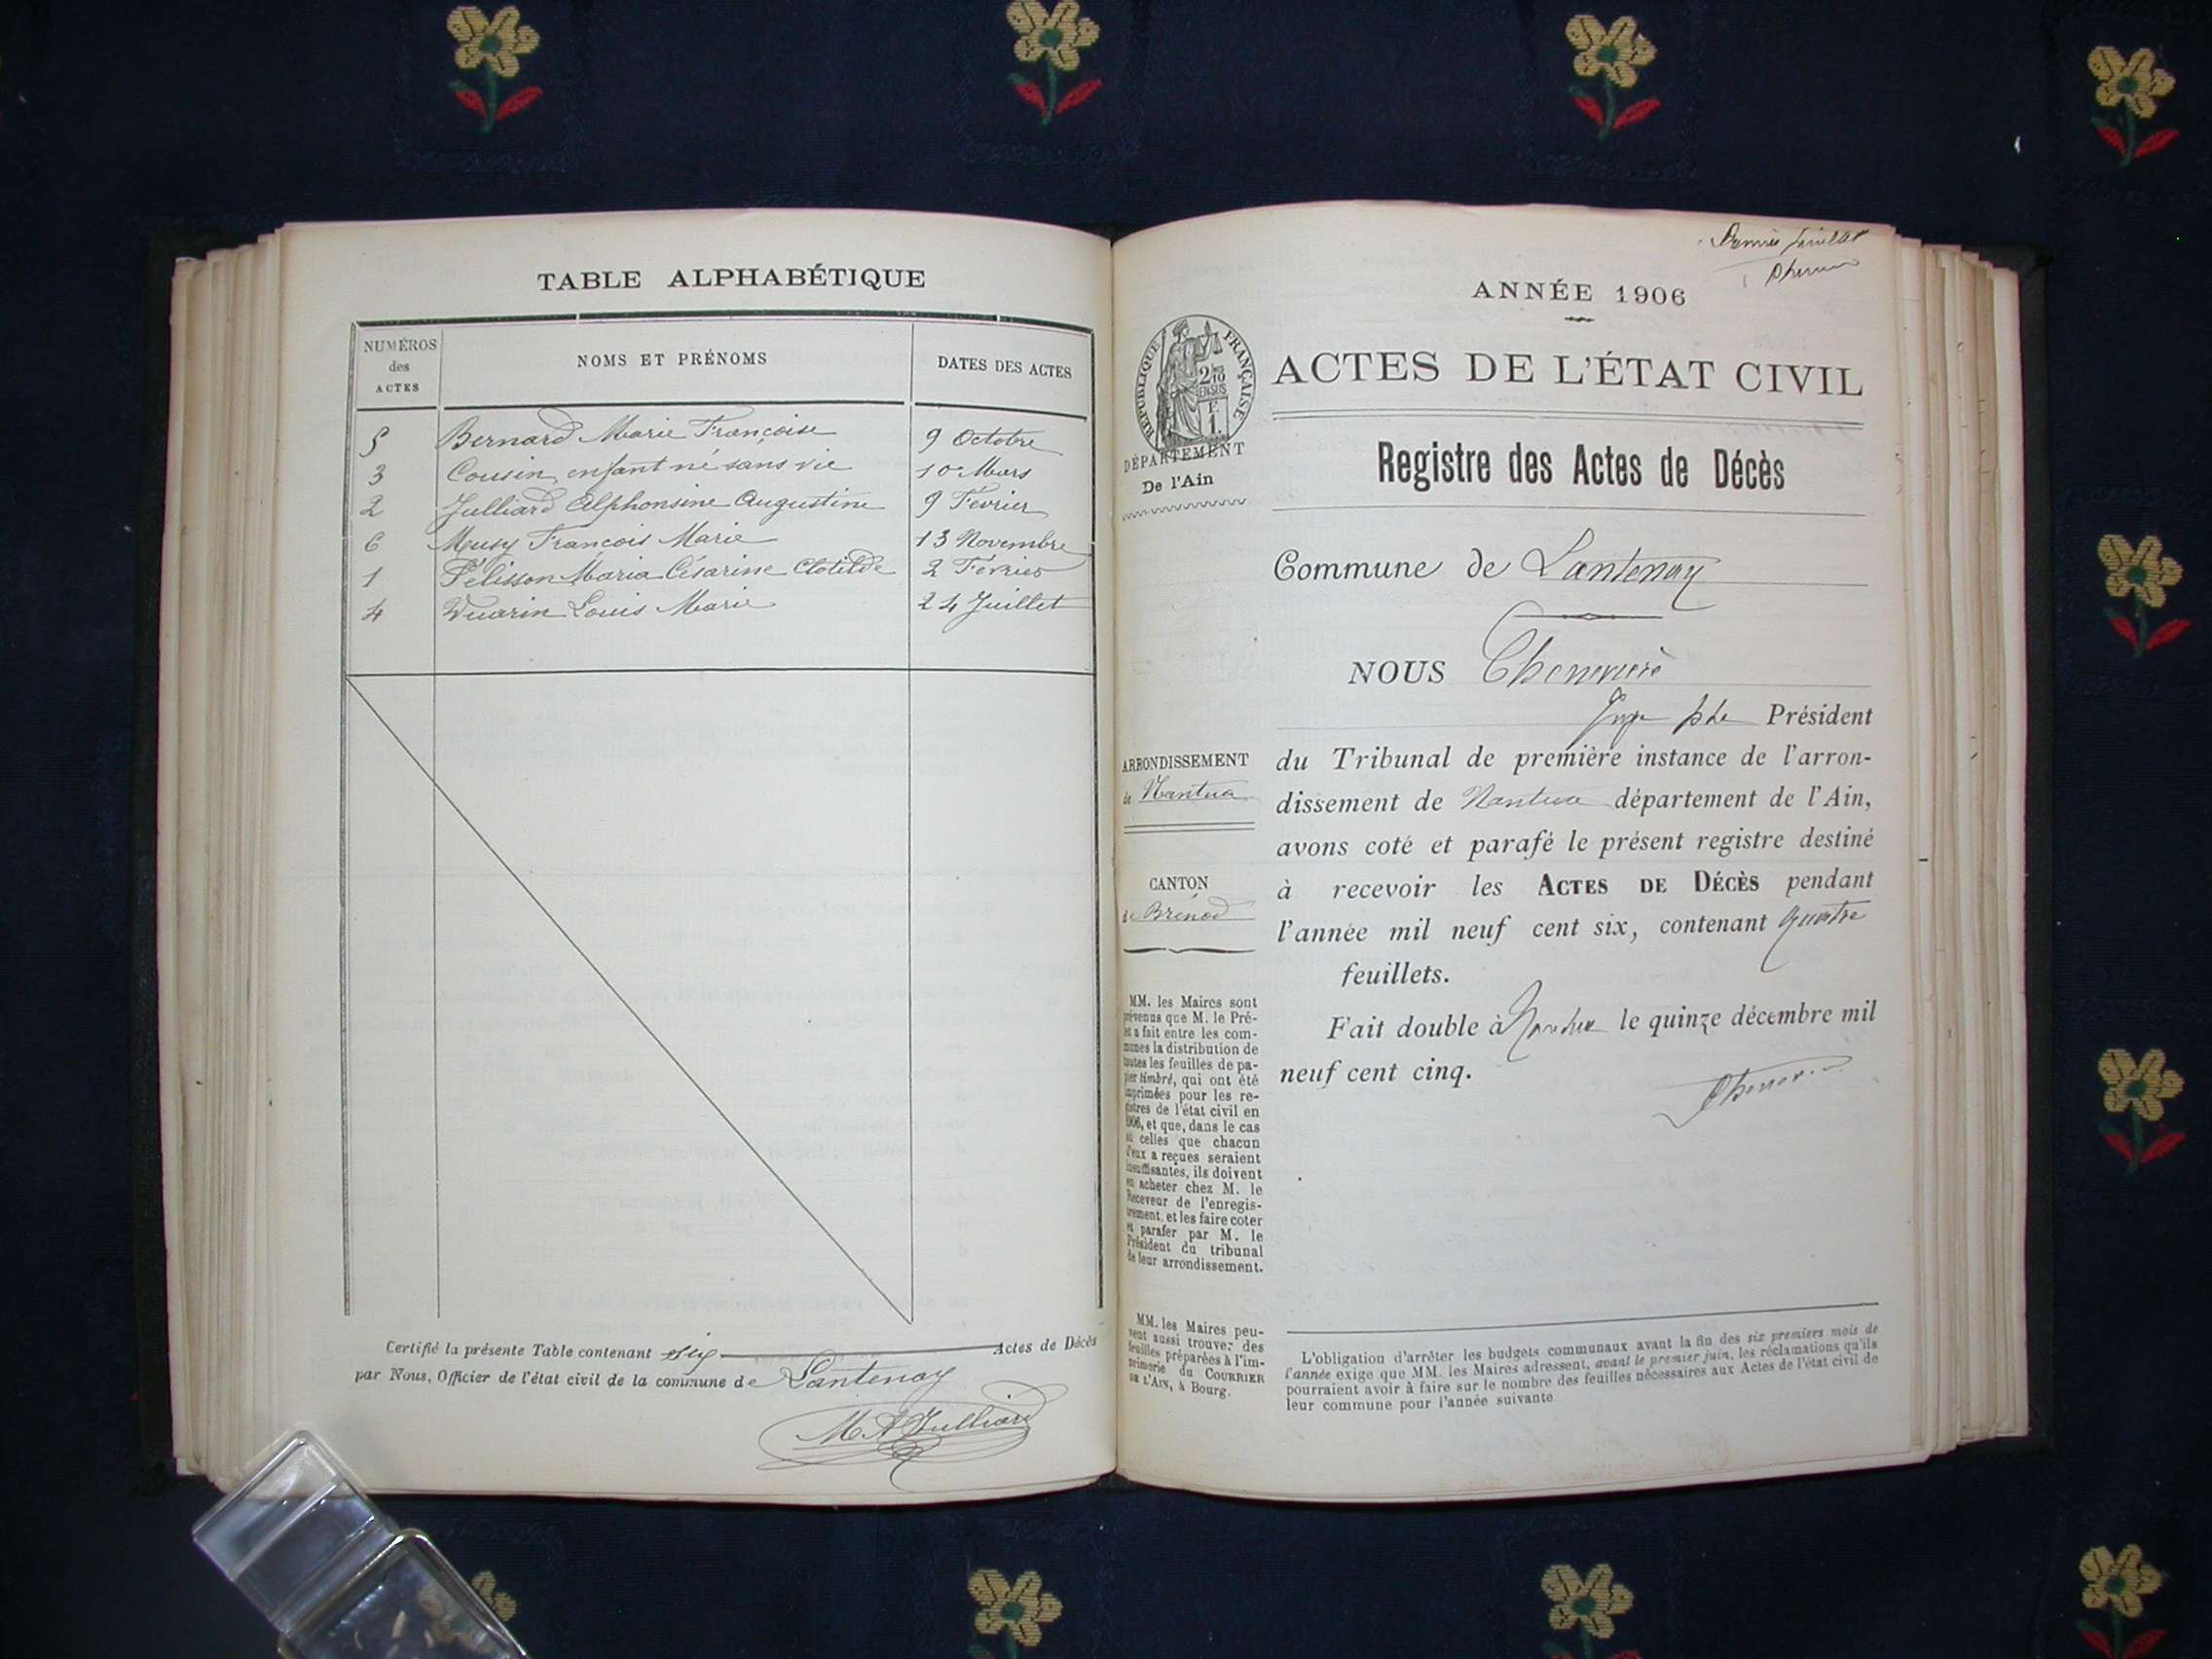 TABLE ALPHABÉTIQUE
NUMÉROS
des
ACTES
NOMS ET PRÉNOMS
DATES DES ACTES
5 Bernard Marie Françoise 9 Octobre
3 Cousin enfant né sans vie 10 Mars
2 Julliard Alphonsine Augustine 9 Février
6 Musy François Marie 13 Novembre
1 Pélisson Maria Césarine Clotilde 2 Février
4 Vuarin Louis Marie 24 Juillet
Certifié la présente Table contenant six Actes de Décès
par Nous, Officier de l'état civil de la commune de Lantenay
M A Julliard
ANNÉE 1906
RÉPUBLIQUE FRANÇAISE
2/10
EN SUS
F.
1.
DÉPARTEMENT
De l'Ain
ARRONDISSEMENT
de Nantua
CANTON
de Brénod
MM. les Maires sont
prévenus que M. le Pré-
fet a fait entre les com-
munes la distribution de
toutes les feuilles de pa-
pier timbré, qui ont été
imprimées pour les re-
gistres de l'état civil en
1906, et que, dans le cas
où celles que chacun
d'eux a reçues seraient
insuffisantes, ils doivent
en acheter chez M. le
Receveur de l'enregis-
trement, et les faire coter
et parafer par M. le
Président du tribunal
de leur arrondissement.
MM. les Maires peu-
vent aussi trouver des
feuilles préparées à l'im-
primerie du COURRIER
DE L'AIN, à Bourg.
ACTES DE L'ÉTAT CIVIL
Registre des Actes de Décès
Commune de Lantenay
NOUS
Président
du Tribunal de première instance de l'arron-
dissement de Nantua département de l'Ain,
avons coté et parafé le présent registre destiné
à recevoir les ACTES DE DÉCÈS pendant
l'année mil neuf cent six, contenant quatre
feuillets.
Fait double à Nantua le quinze décembre mil
neuf cent cinq.
L'obligation d'arrêter les budgets communaux avant la fin des six premiers mois de
l'année exige que MM. les Maires adressent, avant le premier juin, les réclamations qu'ils
pourraient avoir à faire sur le nombre des feuilles nécessaires aux Actes de l'état civil de
leur commune pour l'année suivante